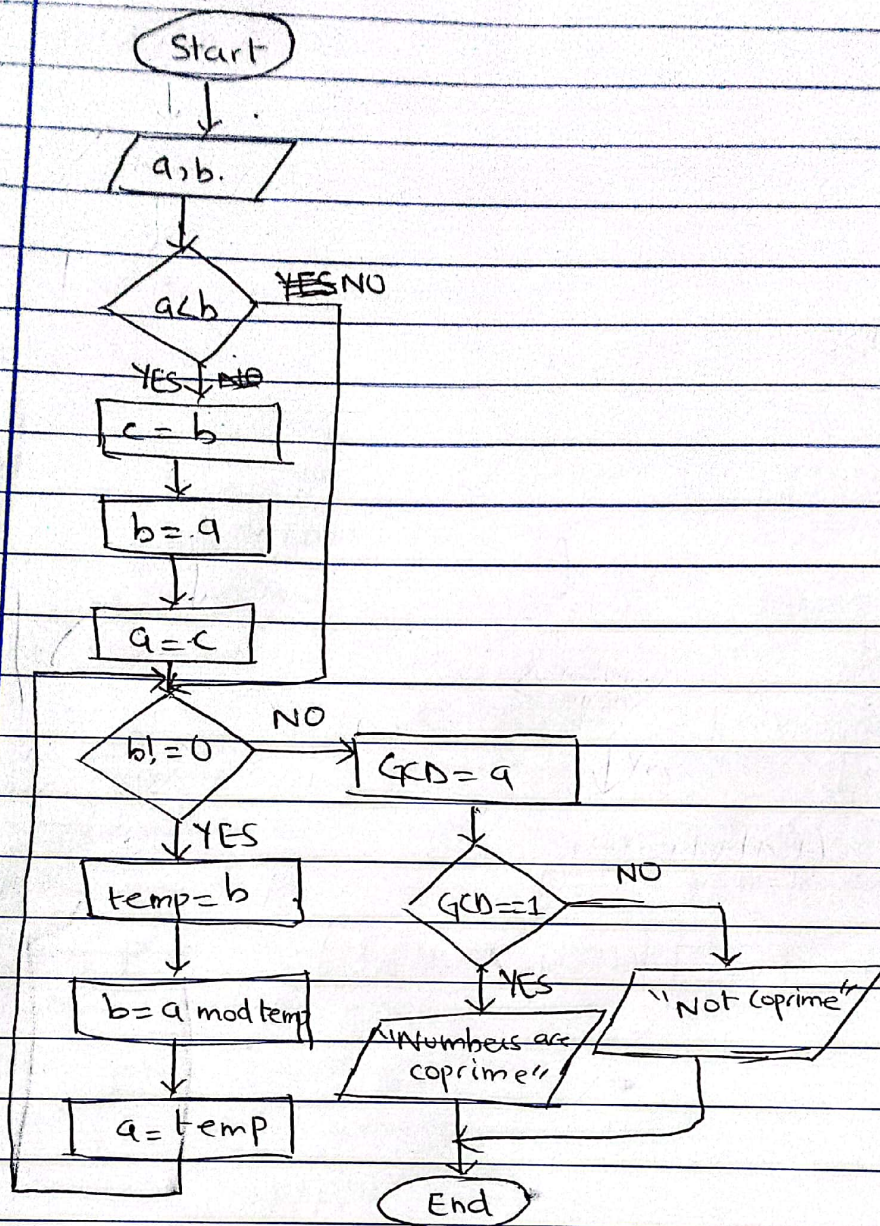 Start
a,b.
a<b
YES NO
YES NO
c = b
b = a
a = c
b! = 0
NO
GCD = a
YES
temp = b
GCD==1
NO
YES
b = a mod temp
"Numbers are
coprime"
"Not Coprime"
a = temp
End